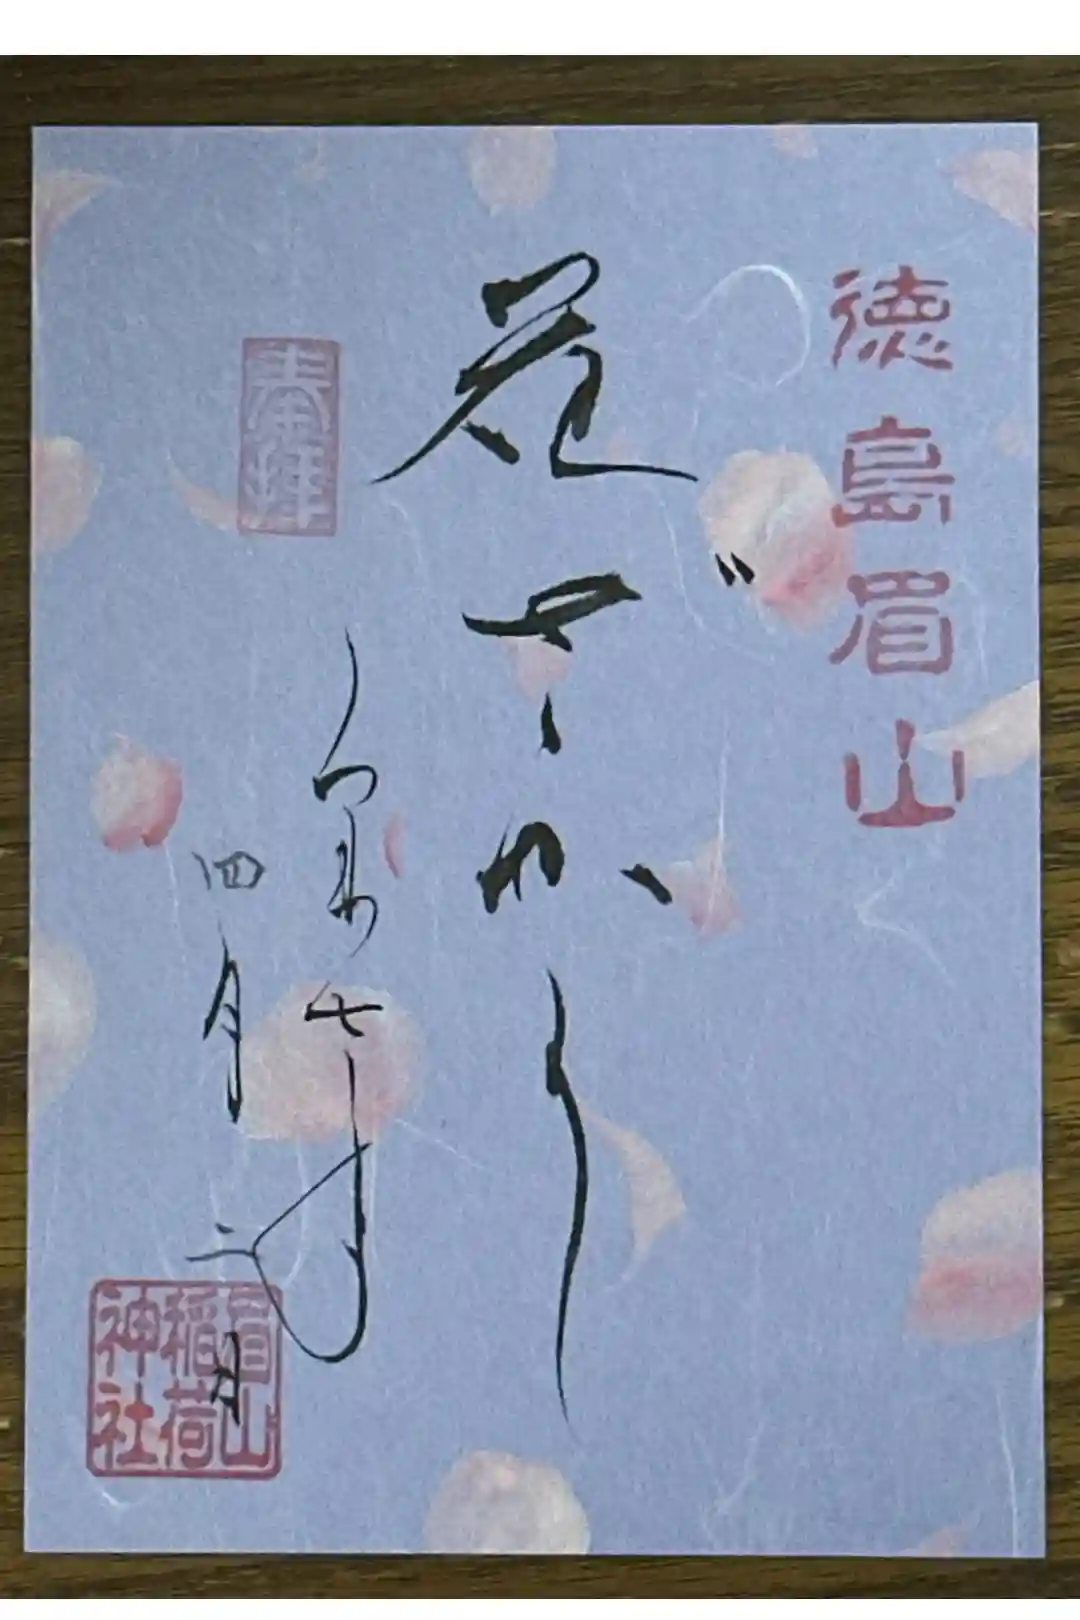 徳島眉山
花ざかり
令和七年
四月二日
奉拝
眉山
稲荷
神社